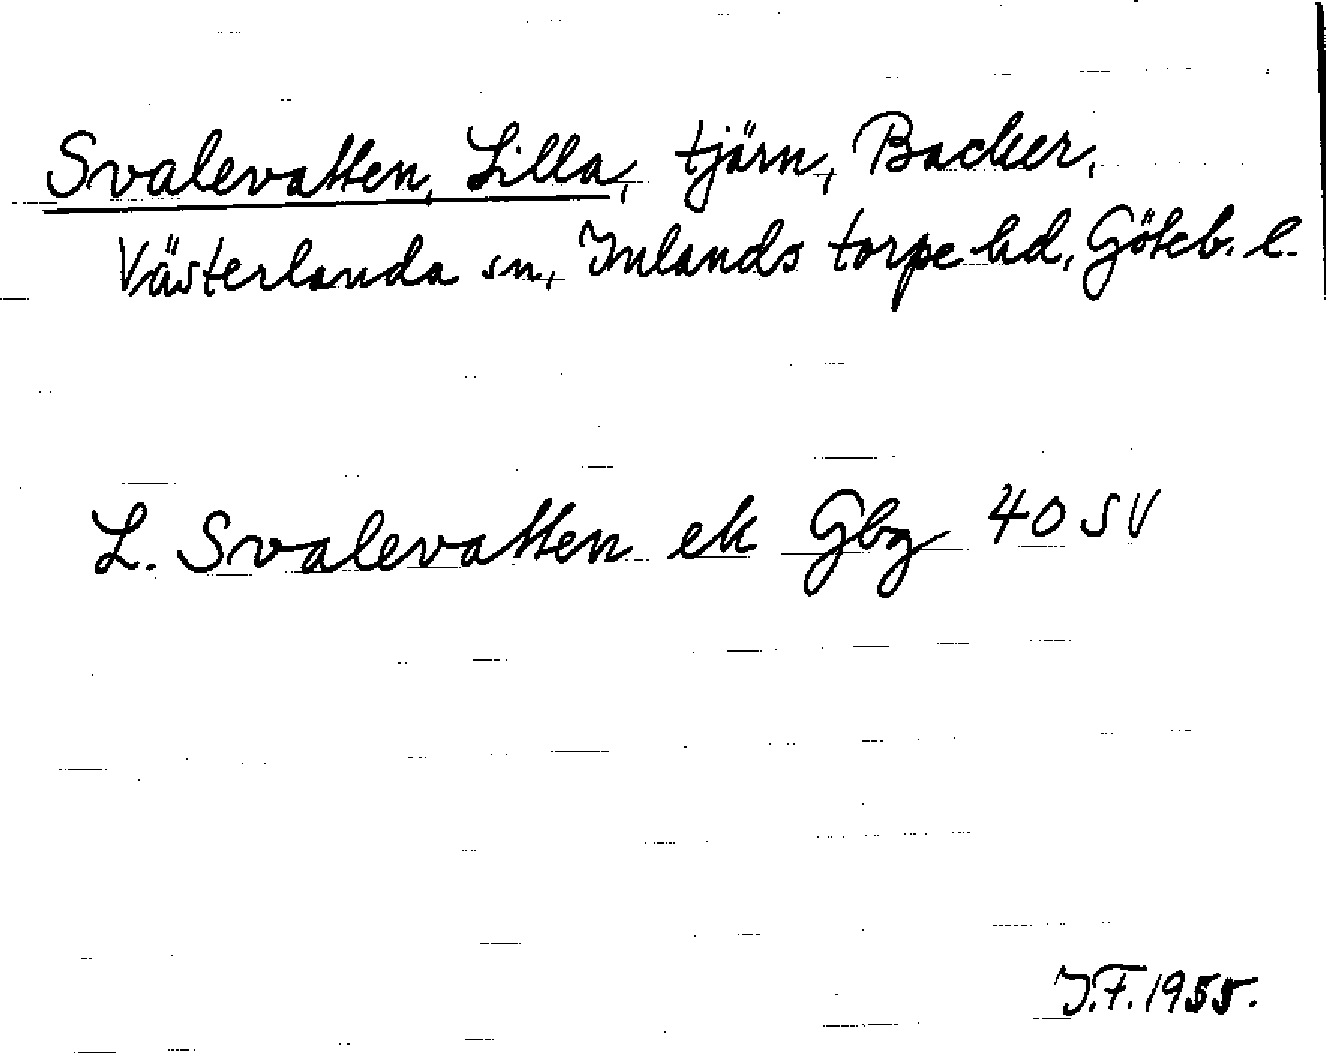 Svalevatten, Lilla, tjärn, Backer,
Västerlanda sn, Inlands torpe hd, Göteb. l.
L. Svalevatten ek Gbg 40 SV
J.F. 1955.